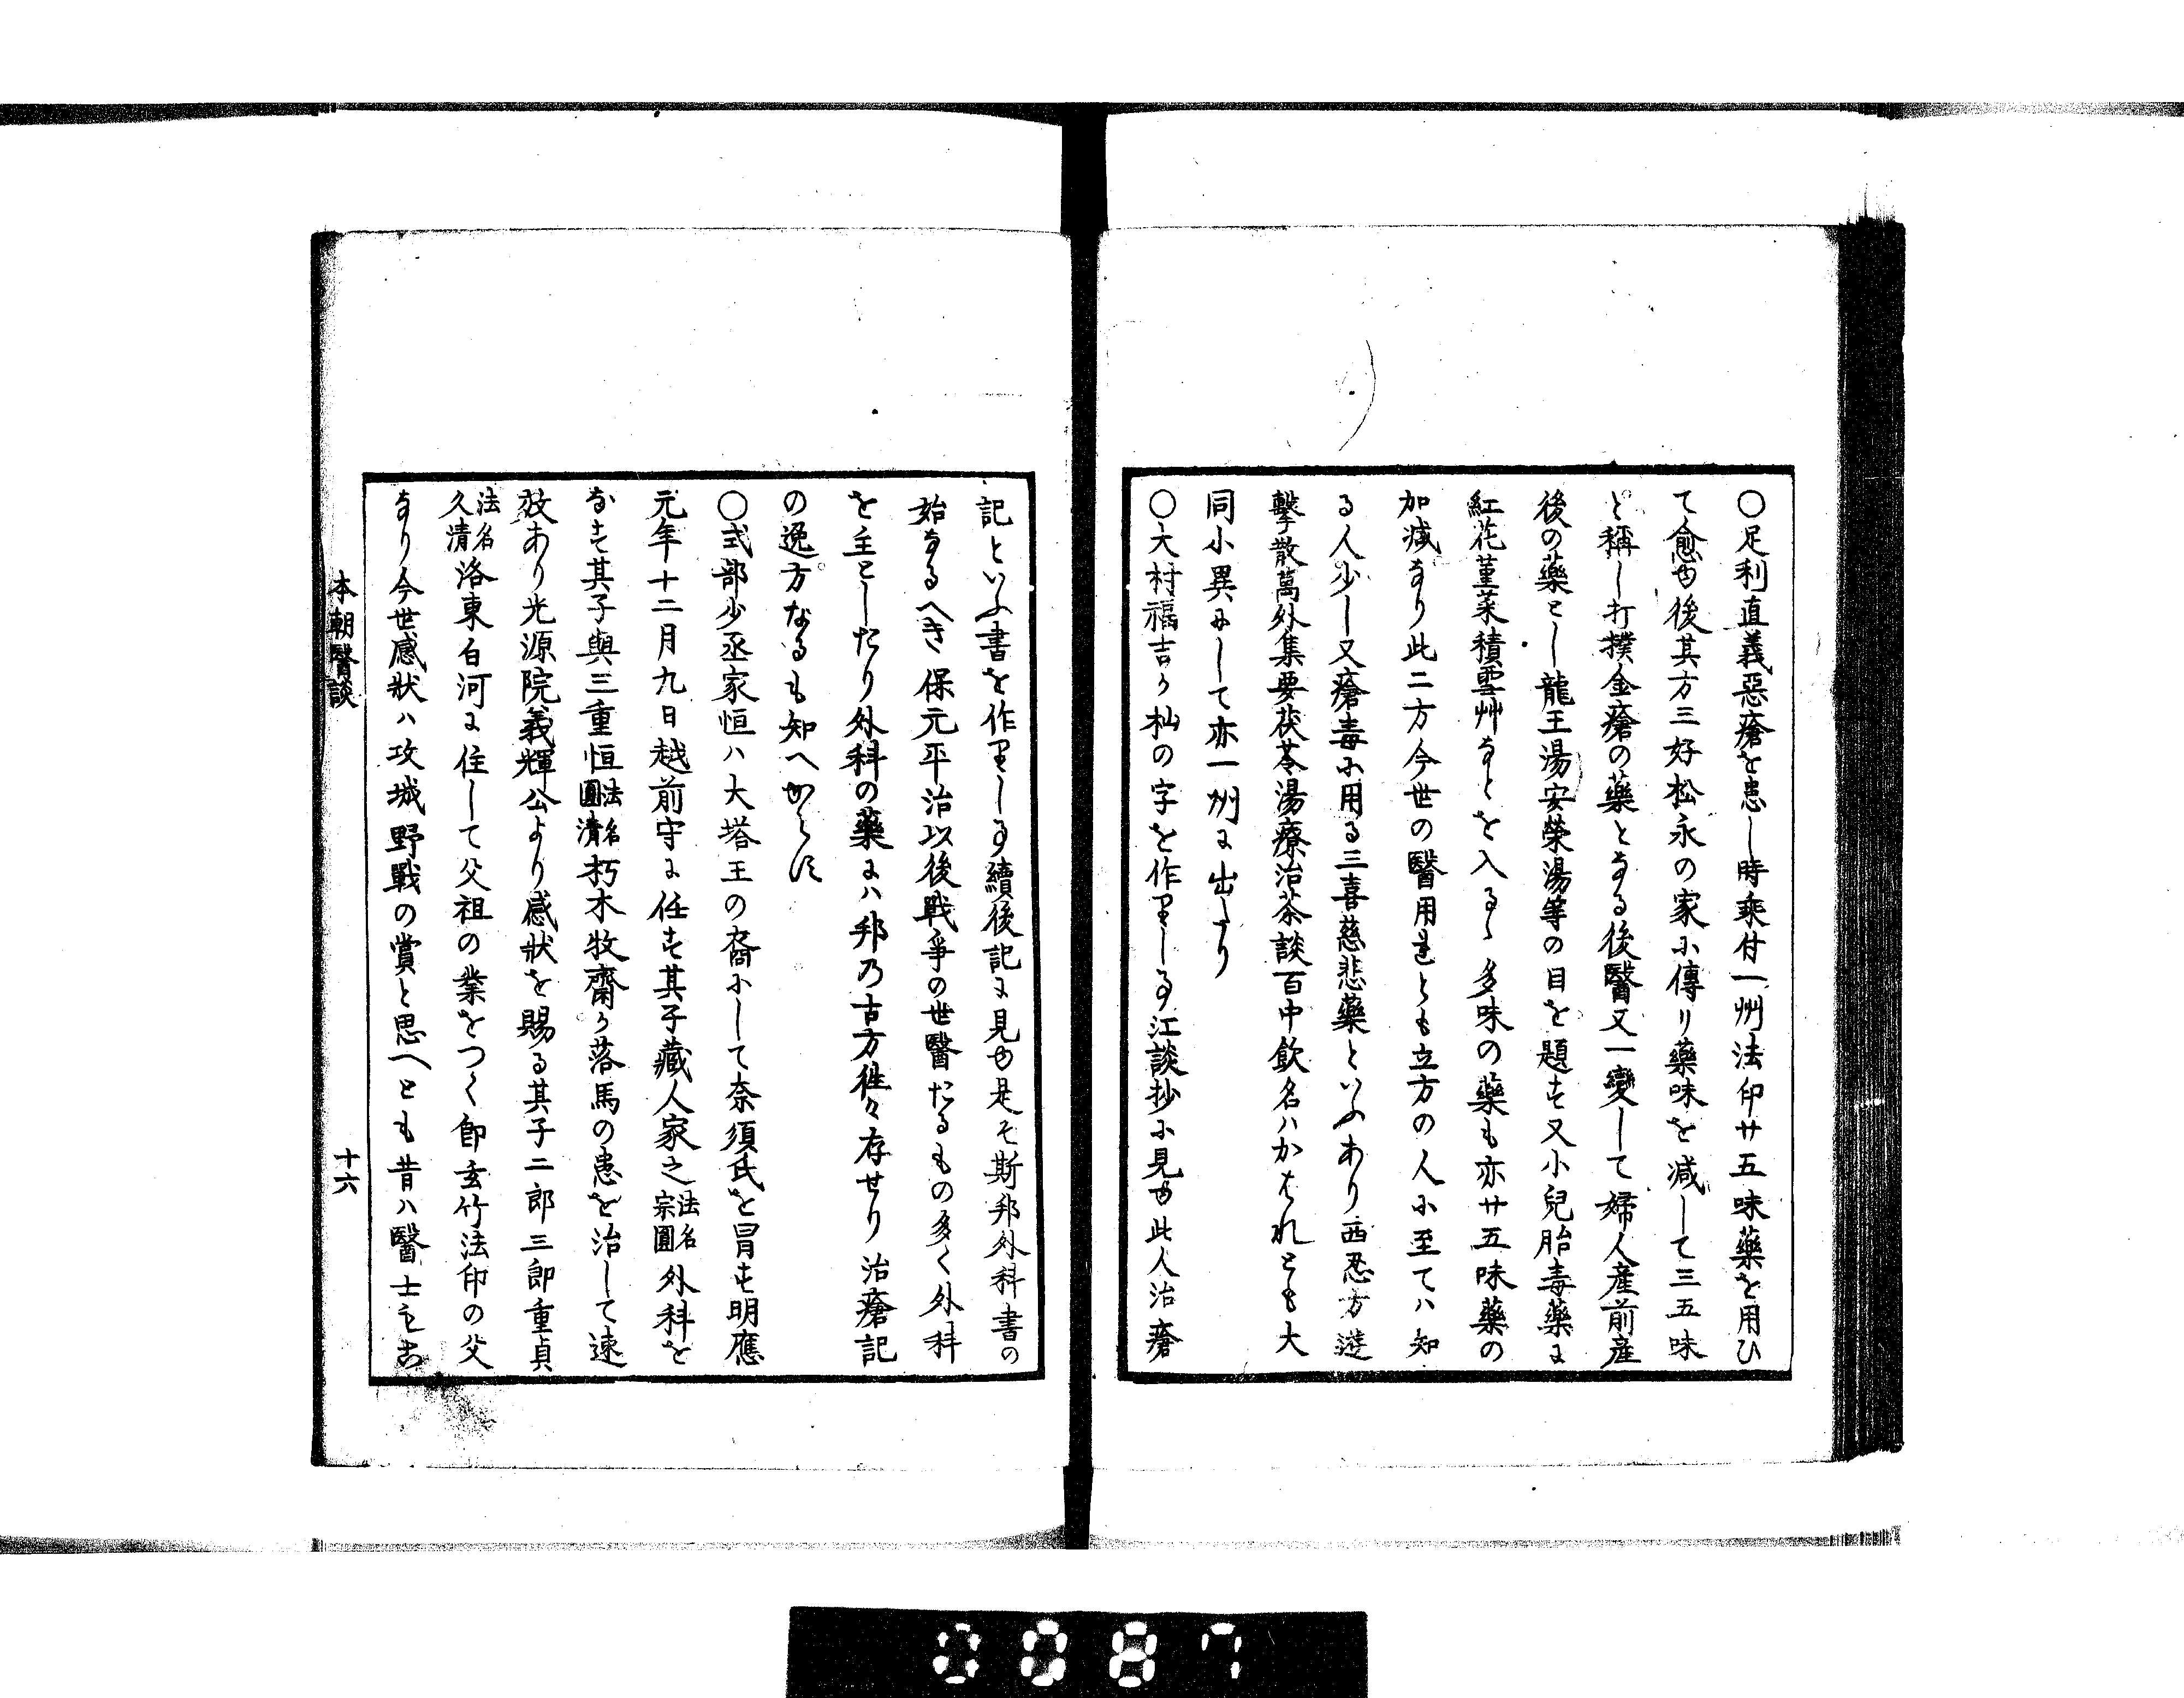 〇足利直義惡瘡を患し時乘付一州法印廿五味藥を用ひ
て愈ゆ後其方三好松永の家に傳り藥味を减して三五味
と稱し打撲金瘡の藥となる後醫又一變して婦人産前産
後の藥とし龍王湯安榮湯等の目を題す又小兒胎毒藥に
紅花菫菜積雪艸なとを入るゝ多味の藥も亦廿五味藥の
加减なり此二方今世の醫用れとも立方の人に至てハ知
る人少し又瘡毒に用る三喜慈悲藥といふあり西忍方
擊散萬外集要茯苓湯療治茶談百中飲名ハかはれとも大
同小異にして亦一州に出たり
〇大村福吉か杣の字を作りし事江談抄に見ゆ此人治瘡
記といふ書を作りし事續後記に見ゆ是そ斯邦外科書の
始なるへき保元平治以後戰爭の世醫たるもの多く外科
を主としたり外科の藥にハ邦乃古方徃々存せり治瘡記
の逸方なるも知へからす
〇式部少丞家恒ハ大塔王の裔にして奈須氏を冒す明應
元年十二月九日越前守に任す其子藏人家之法名宗圓外科を
なす其子與三重恒法名圓清朽木牧齋か落馬の患を治して速
效あり光源院義輝公より感狀を賜る其子二郎三郎重貞
法名久清洛東白河に住して父祖の業をつく卽玄竹法印の父
なり今世感狀ハ攻城野戰の賞と思へとも昔ハ醫士も
本朝醫談
十六
0087